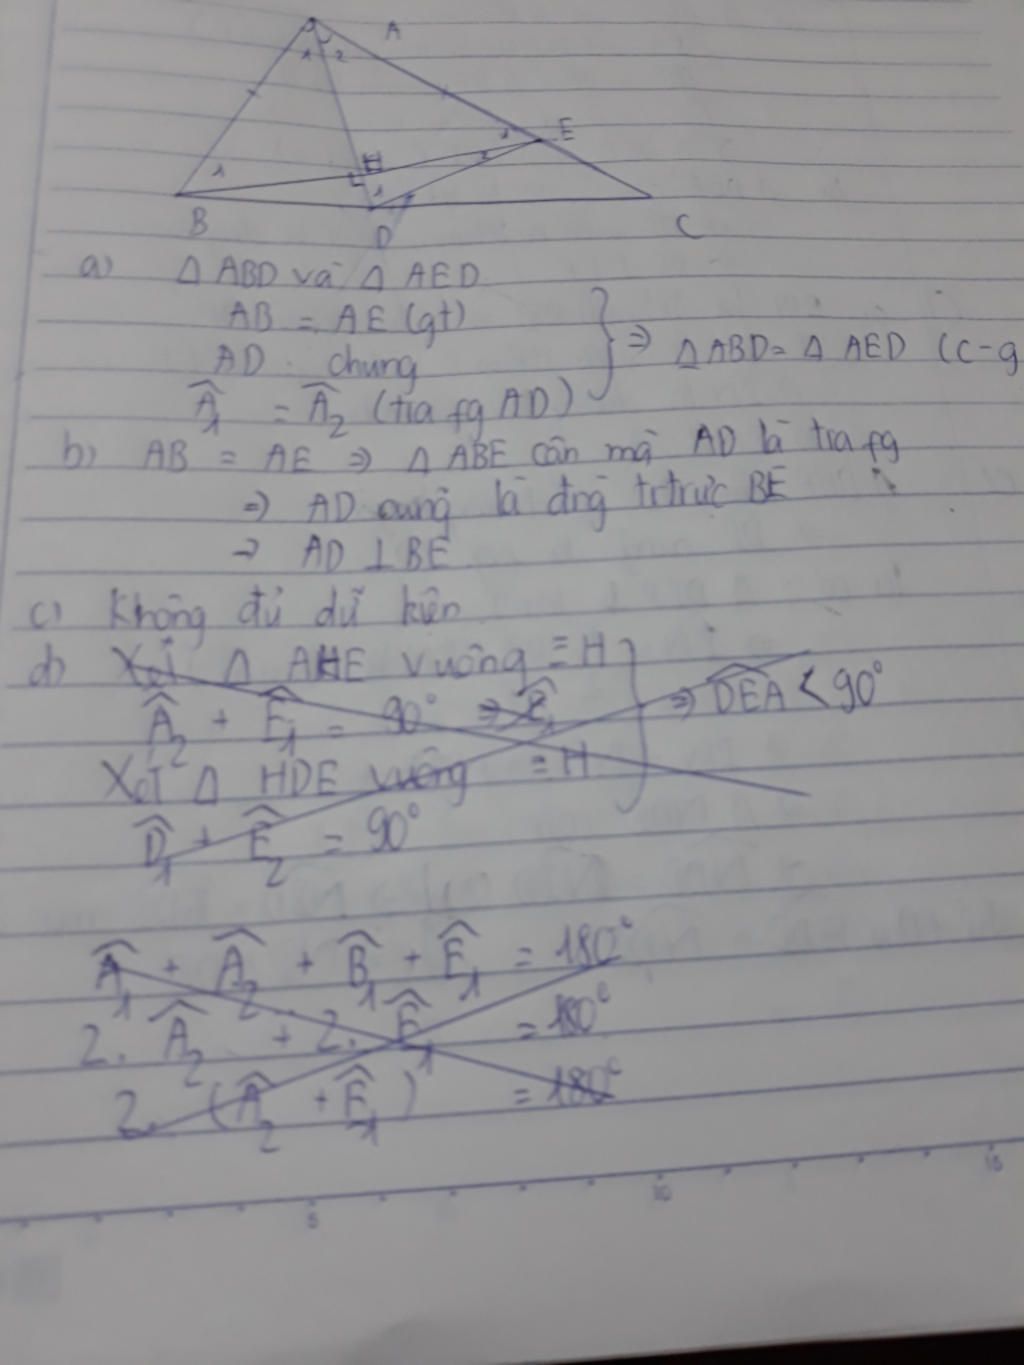 A
1 2
1 E
2
H
1 1
B D C
a) Δ ABD và Δ AED
AB = AE (gt)
AD chung
Â₁ = Â₂ (tia fg AD)
} ⇒ Δ ABD = Δ AED (c-g
b) AB = AE ⇒ Δ ABE cân mà AD là tia fg
⇒ AD cũng là đng trtrực BE
→ AD ⊥ BE
c) Không đủ dữ kiện
d) Xét Δ AHE vuông = H
Â₂ + Ê₁ = 90° ⇒ Ê₁
} ⇒ DEA < 90°
Xét Δ HDE vuông = H
D̂₁ + Ê₂ = 90°
Â₁ + Â₂ + B̂₁ + Ê₁ = 180°
2. Â₂ + 2. Ê₁ = 180°
2. (Â₂ + Ê₁) = 180°
5 10 15